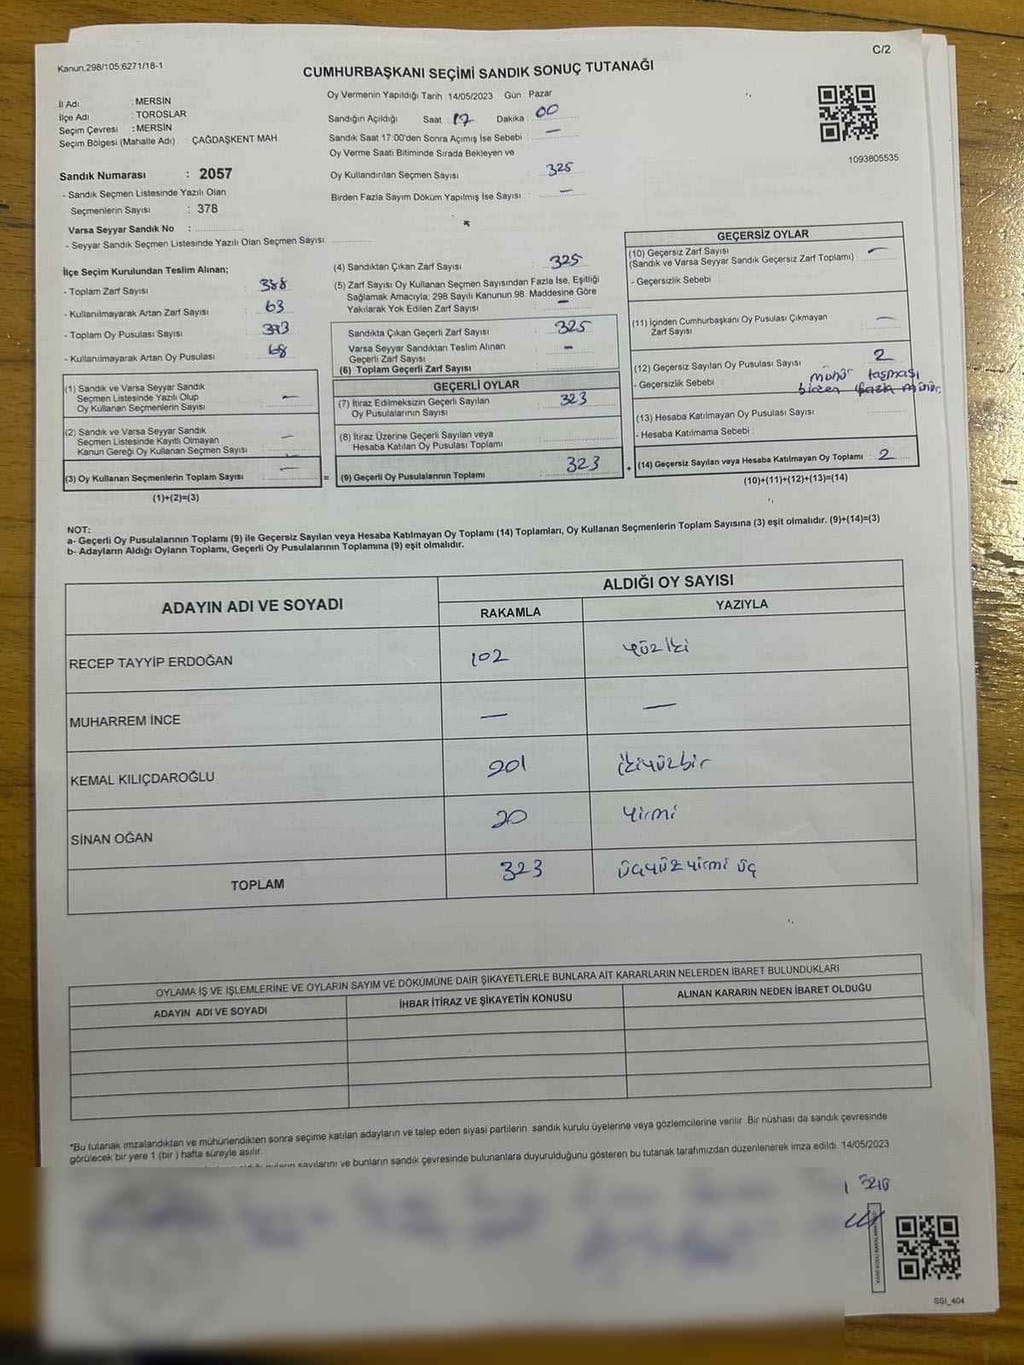 C/2
Kanun,298/105;6271/18-1
CUMHURBAŞKANI SEÇİMİ SANDIK SONUÇ TUTANAĞI
İl Adı : MERSİN
İlçe Adı : TOROSLAR
Seçim Çevresi : MERSİN
Seçim Bölgesi (Mahalle Adı) ÇAĞDAŞKENT MAH
Sandık Numarası : 2057
- Sandık Seçmen Listesinde Yazılı Olan
Seçmenlerin Sayısı : 378
Varsa Seyyar Sandık No :
- Seyyar Sandık Seçmen Listesinde Yazılı Olan Seçmen Sayısı
Oy Vermenin Yapıldığı Tarih 14/05/2023 Gün Pazar
Sandığın Açıldığı Saat : 17 Dakika : 00
Sandık Saat 17:00'den Sonra Açımış İse Sebebi : —
Oy Verme Saati Bitiminde Sırada Bekleyen ve
Oy Kullandırılan Seçmen Sayısı : 325
Birden Fazla Sayım Döküm Yapılmış İse Sayısı : —
1093805535
İlçe Seçim Kurulundan Teslim Alınan;
- Toplam Zarf Sayısı : 388
- Kullanılmayarak Artan Zarf Sayısı : 63
- Toplam Oy Pusulası Sayısı : 393
- Kullanılmayarak Artan Oy Pusulası : 68
(1) Sandık ve Varsa Seyyar Sandık
Seçmen Listesinde Yazılı Olup
Oy Kullanan Seçmenlerin Sayısı —
(2) Sandık ve Varsa Seyyar Sandık
Seçmen Listesinde Kayıtlı Olmayan
Kanun Gereği Oy Kullanan Seçmen Sayısı —
(3) Oy Kullanan Seçmenlerin Toplam Sayısı —
(1)+(2)=(3)
(4) Sandıktan Çıkan Zarf Sayısı 325
(5) Zarf Sayısı Oy Kullanan Seçmen Sayısından Fazla İse, Eşitliği
Sağlamak Amacıyla; 298 Sayılı Kanunun 98. Maddesine Göre
Yakılarak Yok Edilen Zarf Sayısı —
Sandıkta Çıkan Geçerli Zarf Sayısı 325
Varsa Seyyar Sandıktan Teslim Alınan
Geçerli Zarf Sayısı —
(6) Toplam Geçerli Zarf Sayısı
GEÇERLİ OYLAR
(7) İtiraz Edilmeksizin Geçerli Sayılan
Oy Pusulalarının Sayısı 323
(8) İtiraz Üzerine Geçerli Sayılan veya
Hesaba Katılan Oy Pusulası Toplamı
= (9) Geçerli Oy Pusulalarının Toplamı 323
GEÇERSİZ OYLAR
(10) Geçersiz Zarf Sayısı
(Sandık ve Varsa Seyyar Sandık Geçersiz Zarf Toplamı) —
- Geçersizlik Sebebi
(11) İçinden Cumhurbaşkanı Oy Pusulası Çıkmayan
Zarf Sayısı —
(12) Geçersiz Sayılan Oy Pusulası Sayısı 2
- Geçersizlik Sebebi : mühür taşması
birden fazla mühür,
(13) Hesaba Katılmayan Oy Pusulası Sayısı
- Hesaba Katılmama Sebebi :
+ (14) Geçersiz Sayılan veya Hesaba Katılmayan Oy Toplamı 2
(10)+(11)+(12)+(13)=(14)
NOT:
a- Geçerli Oy Pusulalarının Toplamı (9) ile Geçersiz Sayılan veya Hesaba Katılmayan Oy Toplamı (14) Toplamları, Oy Kullanan Seçmenlerin Toplam Sayısına (3) eşit olmalıdır. (9)+(14)=(3)
b- Adayların Aldığı Oyların Toplamı, Geçerli Oy Pusulalarının Toplamına (9) eşit olmalıdır.
ADAYIN ADI VE SOYADI
ALDIĞI OY SAYISI
RAKAMLA YAZIYLA
RECEP TAYYİP ERDOĞAN 102 yüziki
MUHARREM İNCE — —
KEMAL KILIÇDAROĞLU 201 ikiyüzbir
SİNAN OĞAN 20 yirmi
TOPLAM 323 üçyüzyirmi üç
OYLAMA İŞ VE İŞLEMLERİNE VE OYLARIN SAYIM VE DÖKÜMÜNE DAİR ŞİKAYETLERLE BUNLARA AİT KARARLARIN NELERDEN İBARET BULUNDUKLARI
ADAYIN ADI VE SOYADI İHBAR İTİRAZ VE ŞİKAYETİN KONUSU ALINAN KARARIN NEDEN İBARET OLDUĞU
*Bu tutanak imzalandıktan ve mühürlendikten sonra seçime katılan adayların ve talep eden siyasi partilerin sandık kurulu üyelerine veya gözlemcilerine verilir. Bir nüshası da sandık çevresinde
görülecek bir yere 1 (bir ) hafta süreyle asılır.
sayılarını ve bunların sandık çevresinde bulunanlara duyurulduğunu gösteren bu tutanak tarafımızdan düzenlenerek imza edildi. 14/05/2023
SSI_404